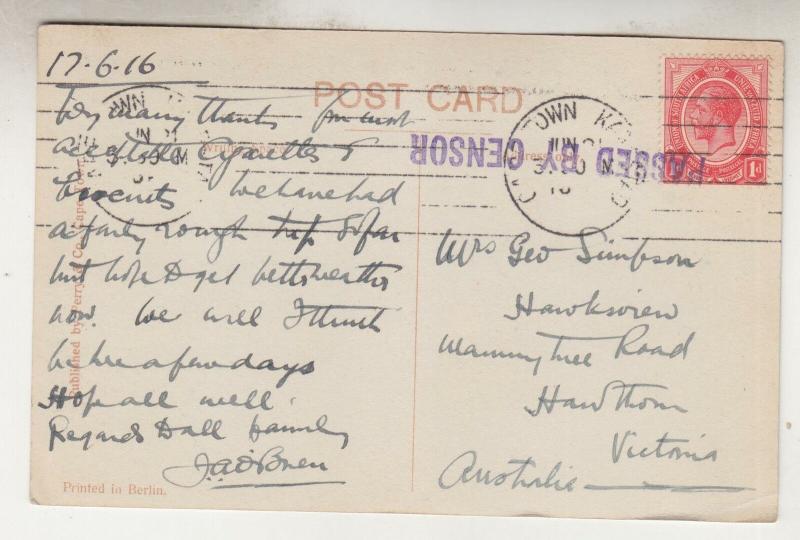 17-6-16
POST CARD
Very many thanks for most
acceptable cigarettes &
biscuits We have had
a fairly rough trip so far
but hope to get better weather
now. We will I think
be here a few days
Hope all well.
Regards to all family
J.A. O'Brien
Printed in Berlin.
Published by Perry & Co. Cape Town
PASSED BY CENSOR
CAPE TOWN
JUN
1d
Mrs Geo Simpson
Hawksview
Road
Hawthorn
Victoria
Australia